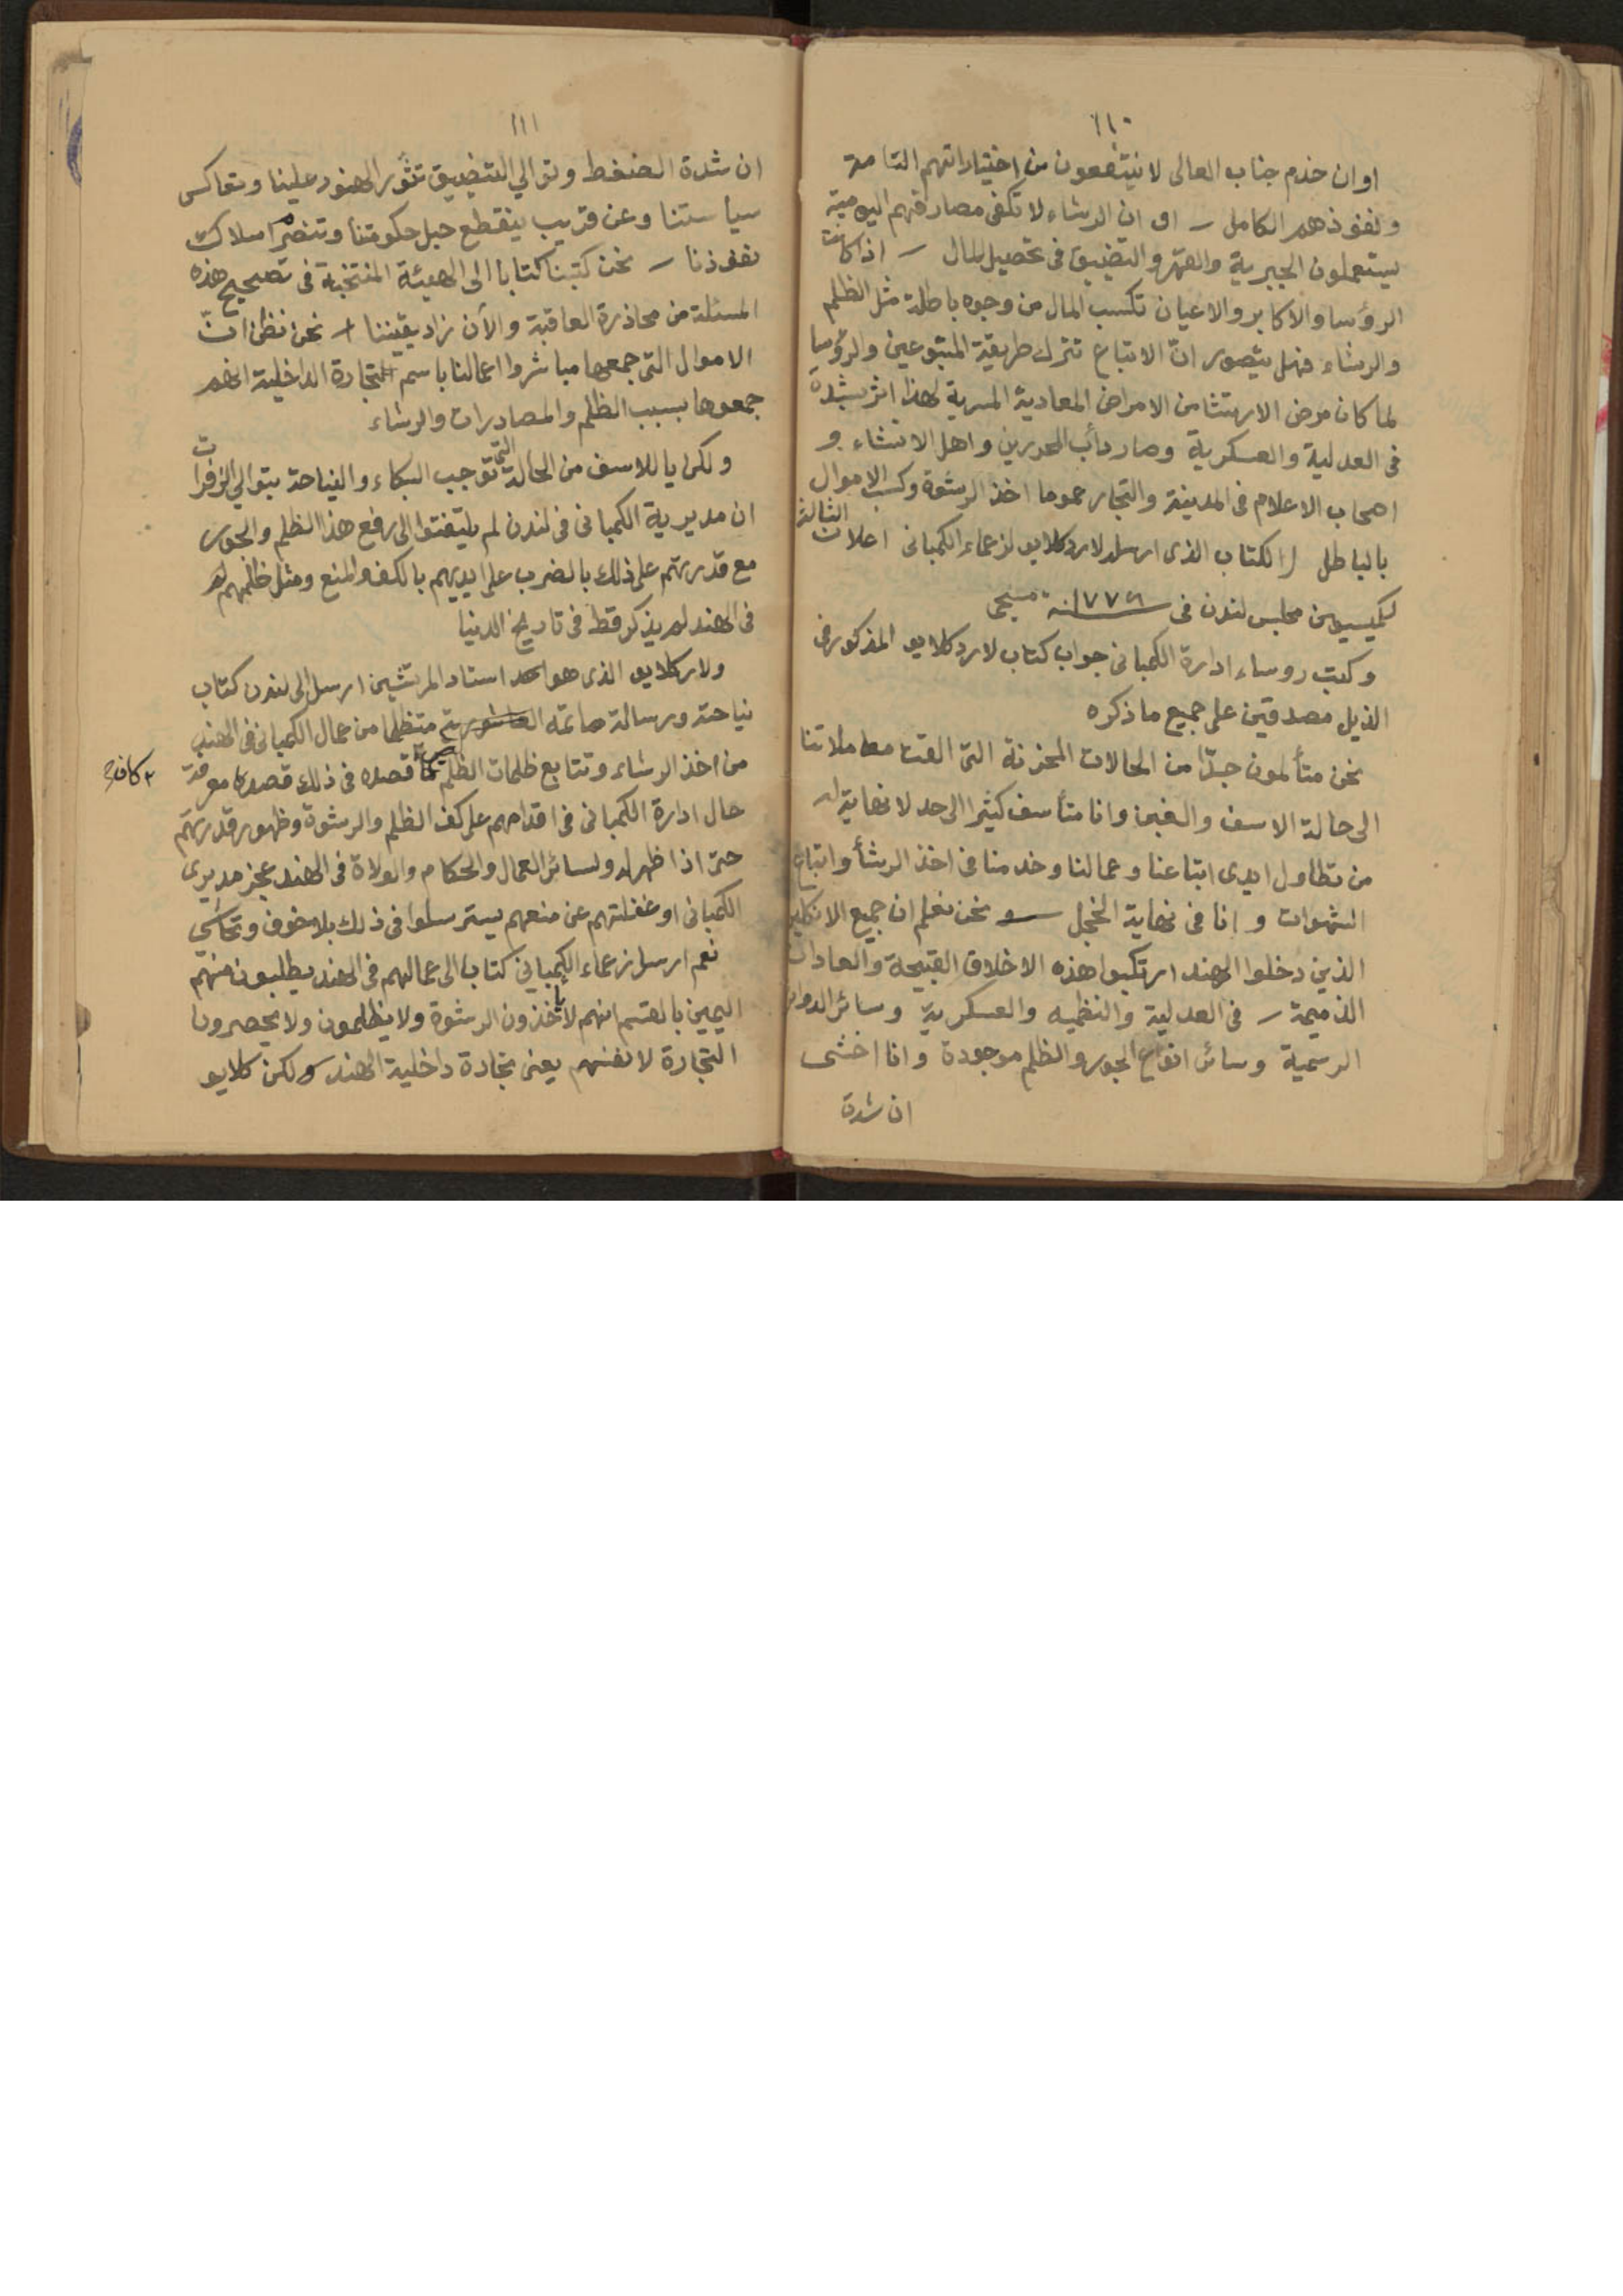 ١١٠
او ان خدم جناب العالى لا ينتفعون من اختياراتهم التامة
ونفوذهم الكامل ــ او ان الرشاء لا تكفى مصارفهم اليومية
يستعملون الجبرية والقهر والتضييق فى تحصيل المال ــ اذا كانت
الرؤسا والاكابر والاعيان تكسب المال من وجوه باطلة مثل الظلم
والرشاء فهل يتصور انّ الاتباع تترك طريقة المتبوعين والرؤسا
لما كان مرض الارتشا من الامراض المعادية المسرية لهذا اثر بشدة
فى العدلية والعسكرية وصار دأب المحررين واهل الانشاء و
اصحاب الاعلام فى المدينة والتجار عموما اخذ الرشوة وكسب الاموال
بالباطل الكتاب الذى ارسله لارد كلايو لزعماء الكمبانى اعلان الثالثة
لكميسيون مجلس لندن فى سنة ١٧٧٢ مسيحى
وكتب روساء ادارة الكمبانى جواب كتاب لارد كلايو المذكور فى
الذيل مصدقين على جميع ما ذكره
نحن متألمون جدّا من الحالات المحزنة التى القت معاملاتنا
الى حالة الاسف والغبن وانا متأسف كثيرا الى حد لا نهاية له
من تطاول ايدى اتباعنا وعمالنا وخدمنا فى اخذ الرشأ واتباع
الشهوات و انا فى نهاية الخجل ــ ونحن نعلم ان جميع الانكليز
الذين دخلوا الهند ارتكبوا هذه الاخلاق القبيحة والعادات
الذميمة ــ فى العدلية والنظميه والعسكرية وسائر الدوائر
الرسمية وسائر انواع الجور والظلم موجودة وانا اخشى
ان شدة
١١١
ان شدة الضغط وتوالى التضييق تثور الهنود علينا وتعاكس
سياستنا وعن قريب ينقطع حبل حكومتنا وتنصرم اسلاك
نفوذنا ــ نحن كتبنا كتابا الى الهيئة المنتخبة فى تصحيح هذه
المسئلة من محاذرة العاقبة والأن زاد يقيننا ــ نحن نظن انّ
الاموال التى جمعها مباشروا اعمالنا باسم التجارة الداخلية انهم
جمعوها بسبب الظلم والمصادرات والرشاء
ولكن ياللاسف من الحالة التى توجب البكاء والنياحة بتوالى الزفرات
ان مديرية الكمبانى فى لندن لم يلتفتوا الى رفع هذا الظلم والجور
مع قدرتهم على ذلك بالضرب على ايديهم بالكف والمنع ومثل ظلمهم لهم
فى الهند لم يذكر قط فى تاريخ الدنيا
ولارد كلايو الذى هو احد استاد المرتشين ارسل الى لندن كتاب
نياحته ورسالة متظلما من عمال الكمبانى فى الهند
من اخذ الرشاء وتتابع ظلمات الظلم قصده فى ذلك معرفة
٢ كافة
حال ادارة الكمبانى فى اقدامهم على كف الظلم والرشوة وظهور قدرتهم
حتى اذا ظهر له ولسائر العمال والحكام والولاة فى الهند عجز مديرى
الكمبانى او غفلتهم عن منعهم يسترسلوا فى ذلك بلا خوف وتحاشى
نعم ارسل زعماء الكمبانى كتابا الى عمالهم فى الهند يطلبون منهم
اليمين بالقسم انهم لا يأخذون الرشوة ولا يظلمون ولا يحصرون
التجارة لانفسهم يعنى تجارة داخلية الهند ولكن كلايو